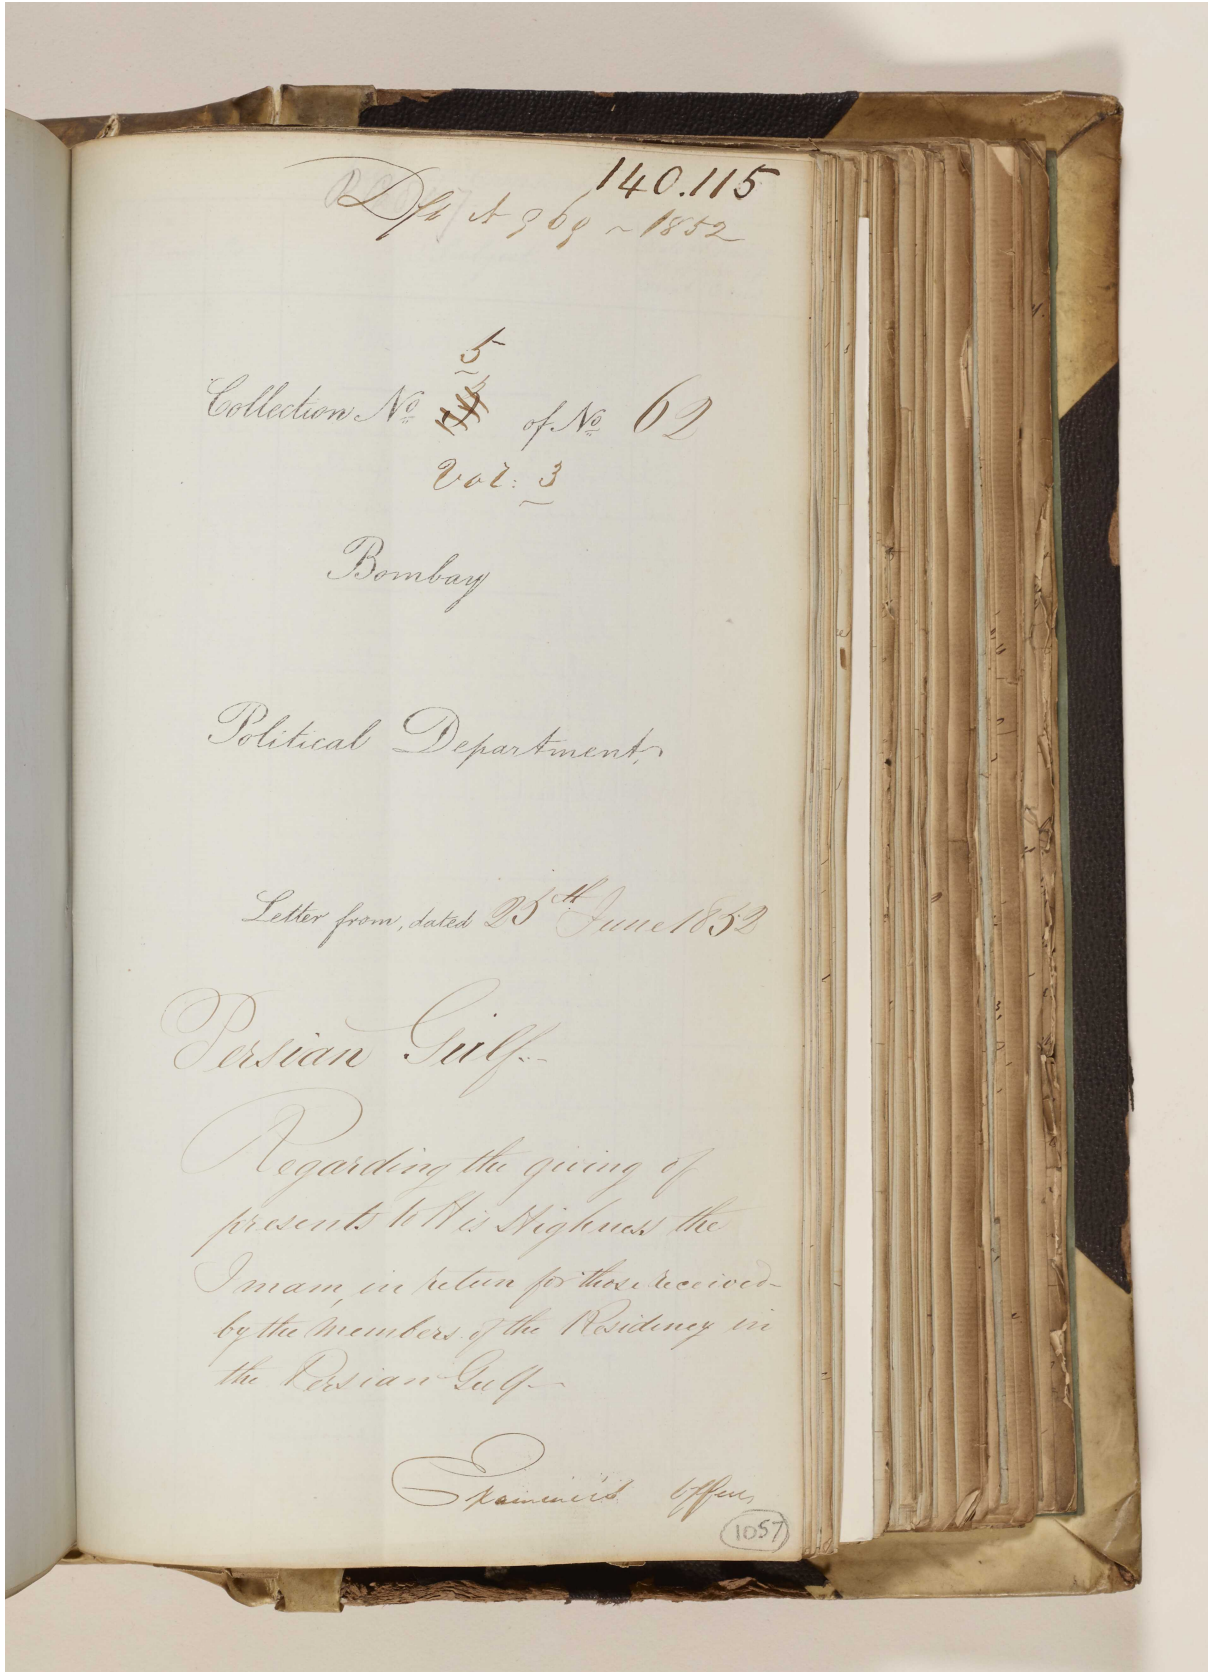 140.115
Dft 969 ~ 1852
5
Collection No of No 62
Vol: 3
Bombay
Political Department,
Letter from, dated 25th June 1852
Persian Gulf.-
Regarding the giving of
presents to His Highness the
Imam, in return for those received
by the Members of the Residency in
the Persian Gulf-
Examiner's Office,
1057